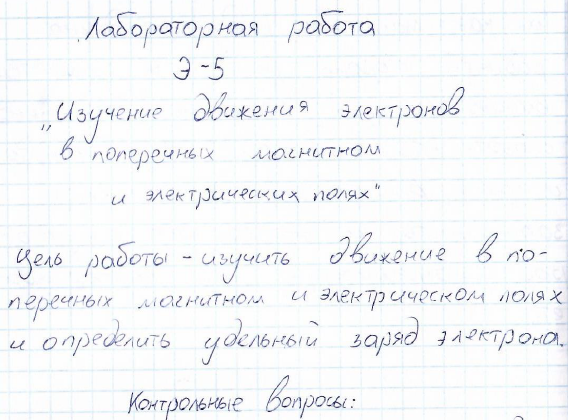 Лабораторная работа
Э-5
„Изучение движения электронов
в поперечных магнитном
и электрических полях"
Цель работы - изучить движение в по-
перечных магнитном и электрическом полях
и определить удельный заряд электрона.
Контрольные вопросы: